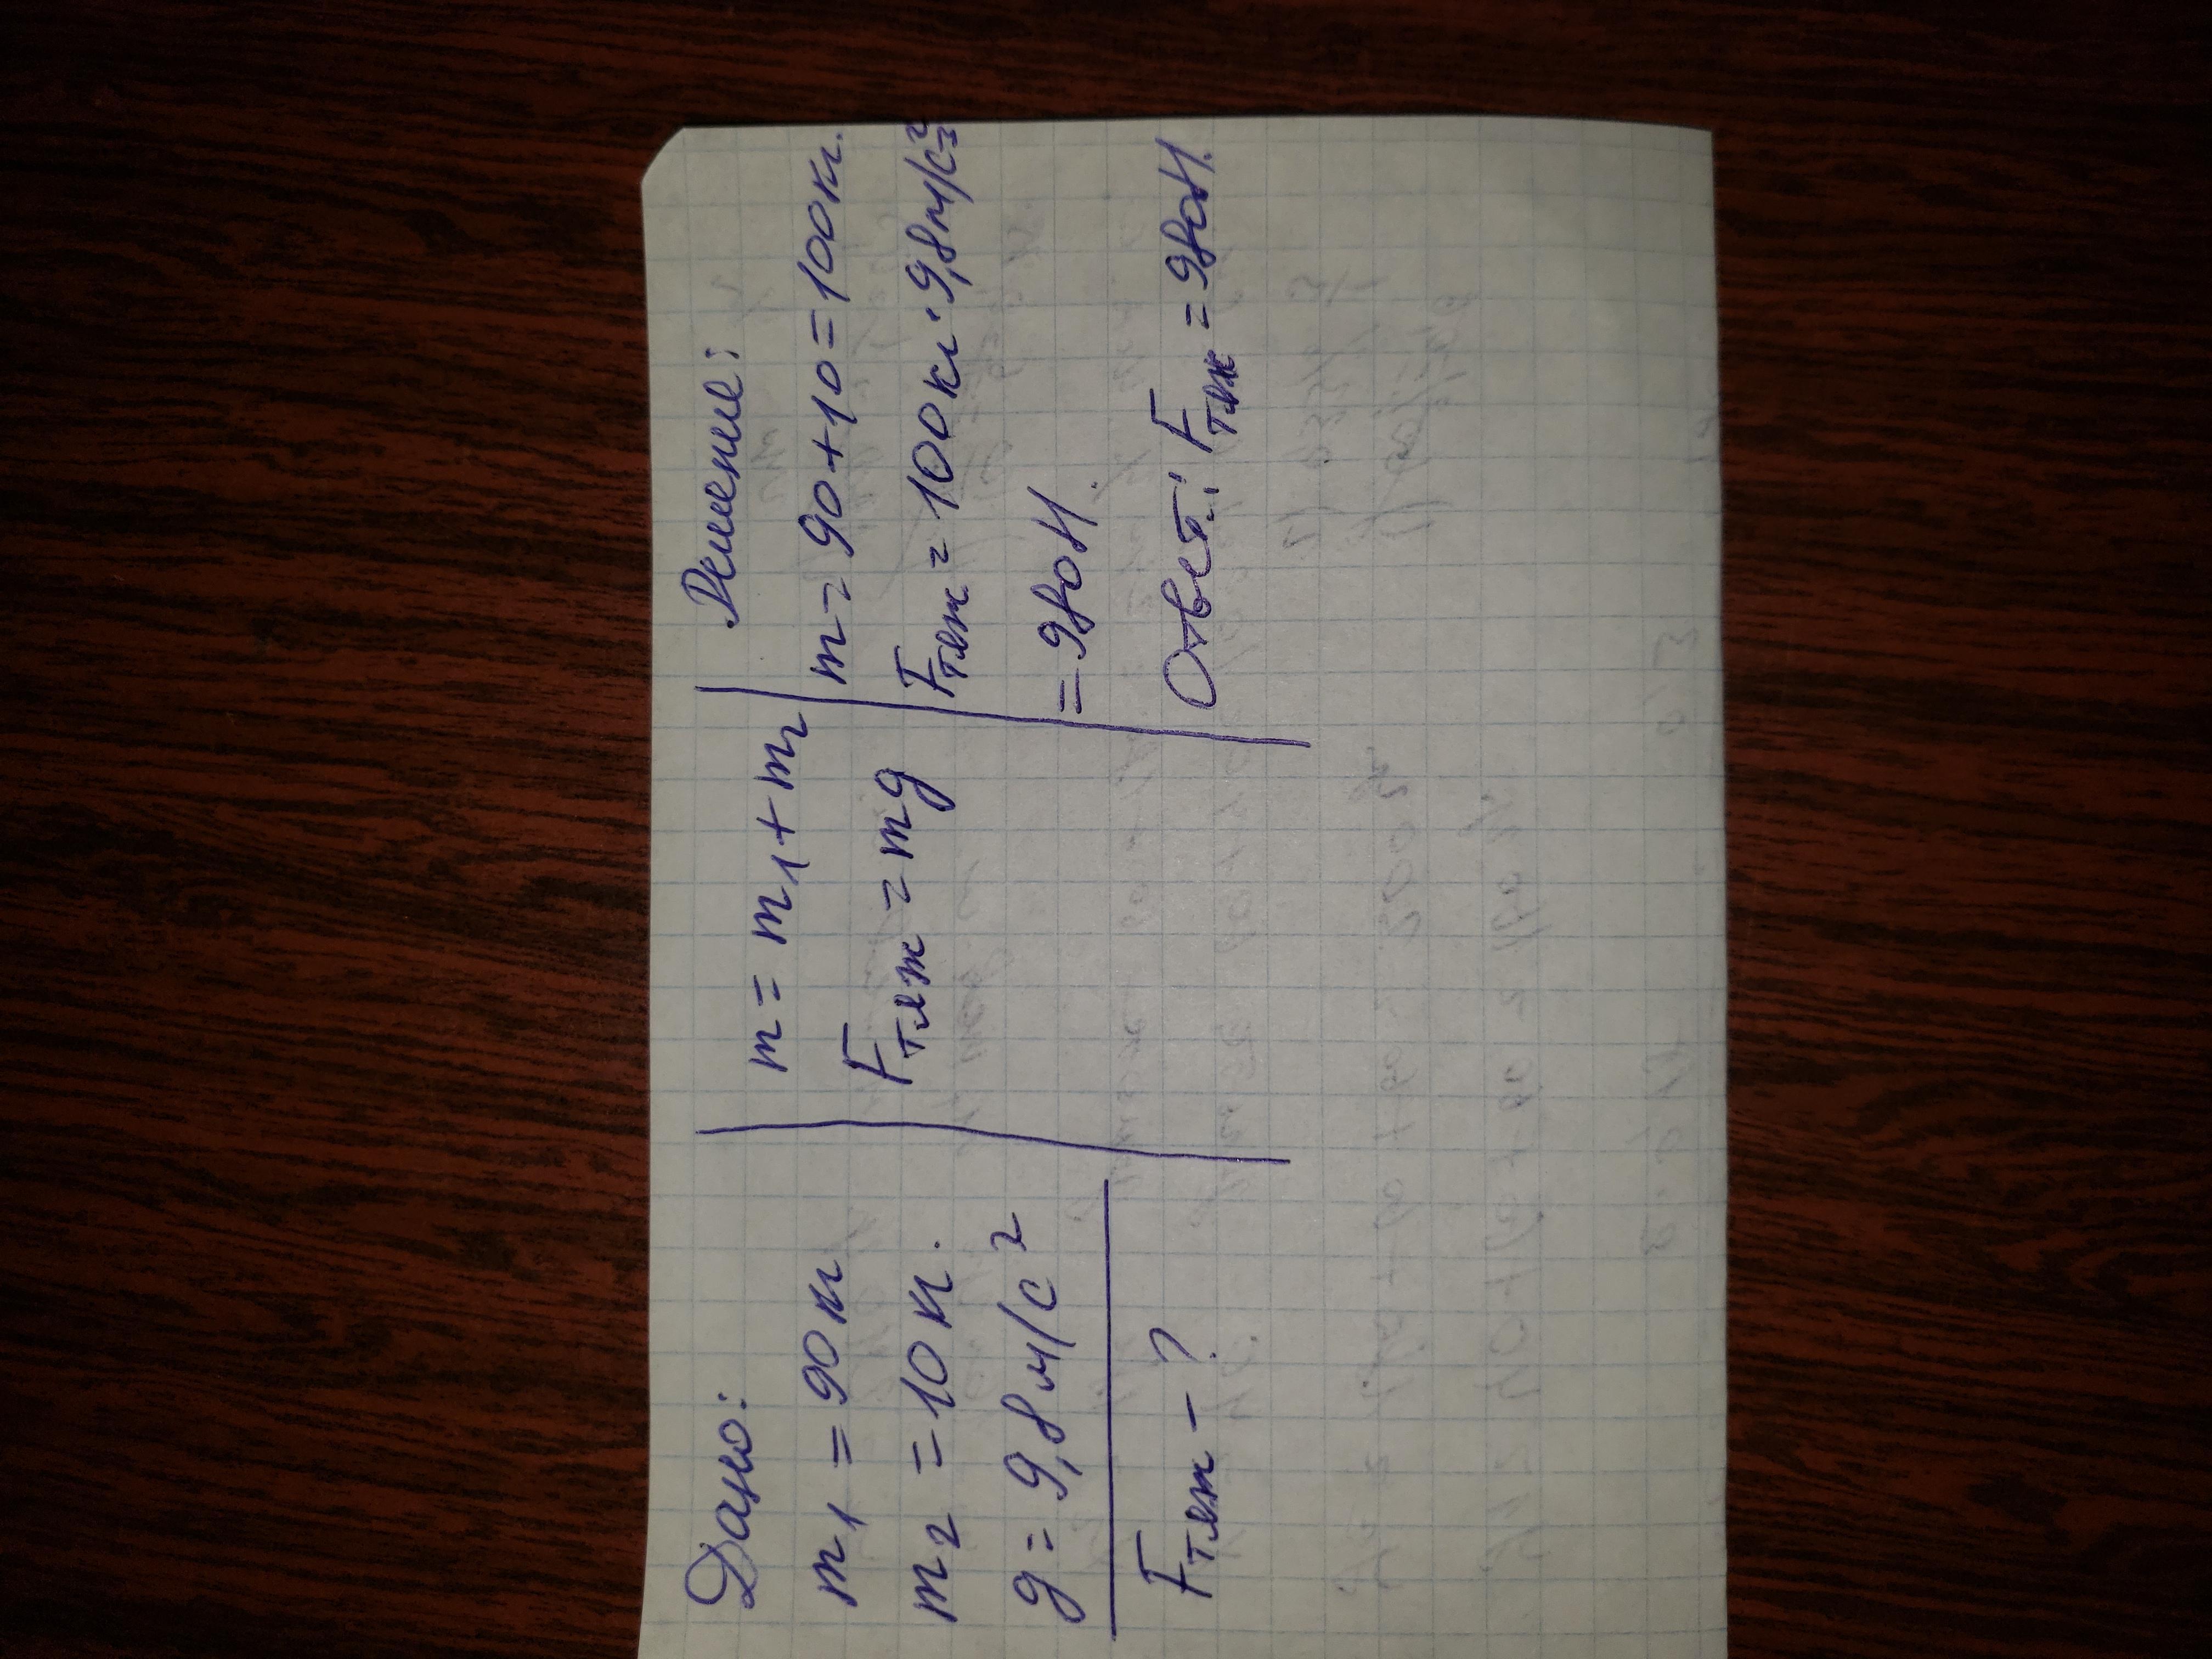 Дано:
m₁ = 90 кг
m₂ = 10 кг.
g = 9,8 м/с²
Fтяж - ?
m = m₁ + m₂
Fтяж = mg
Решение:
m = 90 + 10 = 100 кг.
Fтяж = 100 кг · 9,8 м/с² =
= 980 Н.
Ответ: Fтяж = 980 Н.